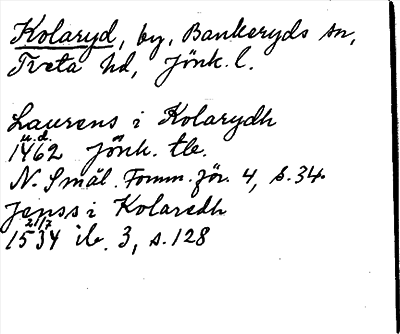 Kolaryd, by, Bankeryds sn,
Tveta hd, Jönk. l.
Laurens i Kolarydh
u.d.
1462 Jönk. tb.
N. Smål. Fornm.för. 4, s. 34.
Jenss i Kolaredh
21/7
1534 ib. 3, s. 128